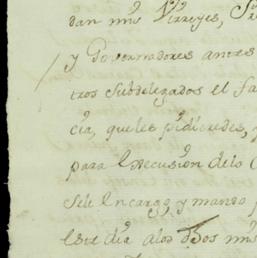 dan mis Virreyes,
y Governadores antes
tros Subdelegados el fa
cia, que les pidieredes,
para la execusión delo
se le encargo, y mando
este dia alos Dhos mis